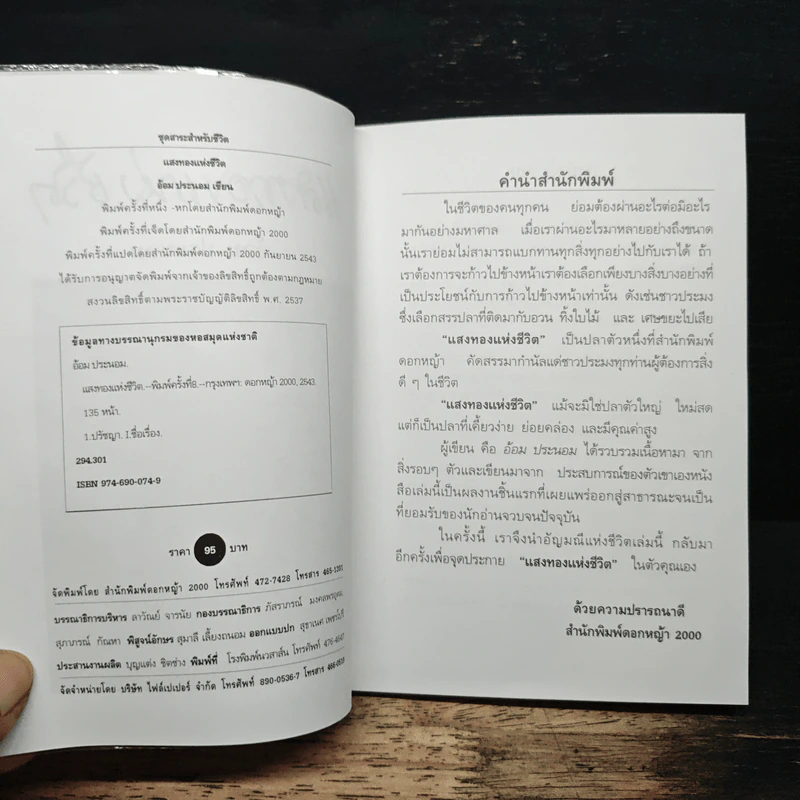 ชุดสาระสำหรับชีวิต
แสงทองแห่งชีวิต
อ้อม ประนอม เขียน
พิมพ์ครั้งที่หนึ่ง -หกโดยสำนักพิมพ์ดอกหญ้า
พิมพ์ครั้งที่เจ็ดโดยสำนักพิมพ์ดอกหญ้า 2000
พิมพ์ครั้งที่แปดโดยสำนักพิมพ์ดอกหญ้า 2000 กันยายน 2543
ได้รับการอนุญาตจัดพิมพ์จากเจ้าของลิขสิทธิ์ถูกต้องตามกฎหมาย
สงวนลิขสิทธิ์ตามพระราชบัญญัติลิขสิทธิ์ พ.ศ. 2537
ข้อมูลทางบรรณานุกรมของหอสมุดแห่งชาติ
อ้อม ประนอม.
แสงทองแห่งชีวิต.--พิมพ์ครั้งที่8.--กรุงเทพฯ: ดอกหญ้า 2000, 2543.
135 หน้า.
1.ปรัชญา. I.ชื่อเรื่อง.
294.301
ISBN 974-690-074-9
ราคา 95 บาท
จัดพิมพ์โดย สำนักพิมพ์ดอกหญ้า 2000 โทรศัพท์ 472-7428 โทรสาร
บรรณาธิการบริหาร ลาวัณย์ จารนัย กองบรรณาธิการ ภัสราภรณ์
สุภาภรณ์ กัณหา พิสูจน์อักษร สุมาลี เลี้ยงถนอม ออกแบบปก สุชาเนศ
ประสานงานผลิต บุญแต่ง ชิดช่าง พิมพ์ที่ โรงพิมพ์นวสาส์น โทรศัพท์
จัดจำหน่ายโดย บริษัท ไฟล์เปเปอร์ จำกัด โทรศัพท์ 890-0536-7 โทรสาร
คำนำสำนักพิมพ์
ในชีวิตของคนทุกคน ย่อมต้องผ่านอะไรต่อมิอะไร
มากันอย่างมหาศาล เมื่อเราผ่านอะไรมาหลายอย่างถึงขนาด
นั้นเราย่อมไม่สามารถแบกทานทุกสิ่งทุกอย่างไปกับเราได้ ถ้า
เราต้องการจะก้าวไปข้างหน้าเราต้องเลือกเพียงบางสิ่งบางอย่างที่
เป็นประโยชน์กับการก้าวไปข้างหน้าเท่านั้น ดังเช่นชาวประมง
ซึ่งเลือกสรรปลาที่ติดมากับอวน ทิ้งใบไม้ และ เศษขยะไปเสีย
"แสงทองแห่งชีวิต" เป็นปลาตัวหนึ่งที่สำนักพิมพ์
ดอกหญ้า คัดสรรมากำนัลแด่ชาวประมงทุกท่านผู้ต้องการสิ่ง
ดี ๆ ในชีวิต
"แสงทองแห่งชีวิต" แม้จะมิใช่ปลาตัวใหญ่ ใหม่สด
แต่ก็เป็นปลาที่เคี้ยวง่าย ย่อยคล่อง และมีคุณค่าสูง
ผู้เขียน คือ อ้อม ประนอม ได้รวบรวมเนื้อหามา จาก
สิ่งรอบๆ ตัวและเขียนมาจาก ประสบการณ์ของตัวเขาเองหนัง
สือเล่มนี้เป็นผลงานชิ้นแรกที่เผยแพร่ออกสู่สาธารณะจนเป็น
ที่ยอมรับของนักอ่านจวบจนปัจจุบัน
ในครั้งนี้ เราจึงนำอัญมณีแห่งชีวิตเล่มนี้ กลับมา
อีกครั้งเพื่อจุดประกาย "แสงทองแห่งชีวิต" ในตัวคุณเอง
ด้วยความปรารถนาดี
สำนักพิมพ์ดอกหญ้า 2000